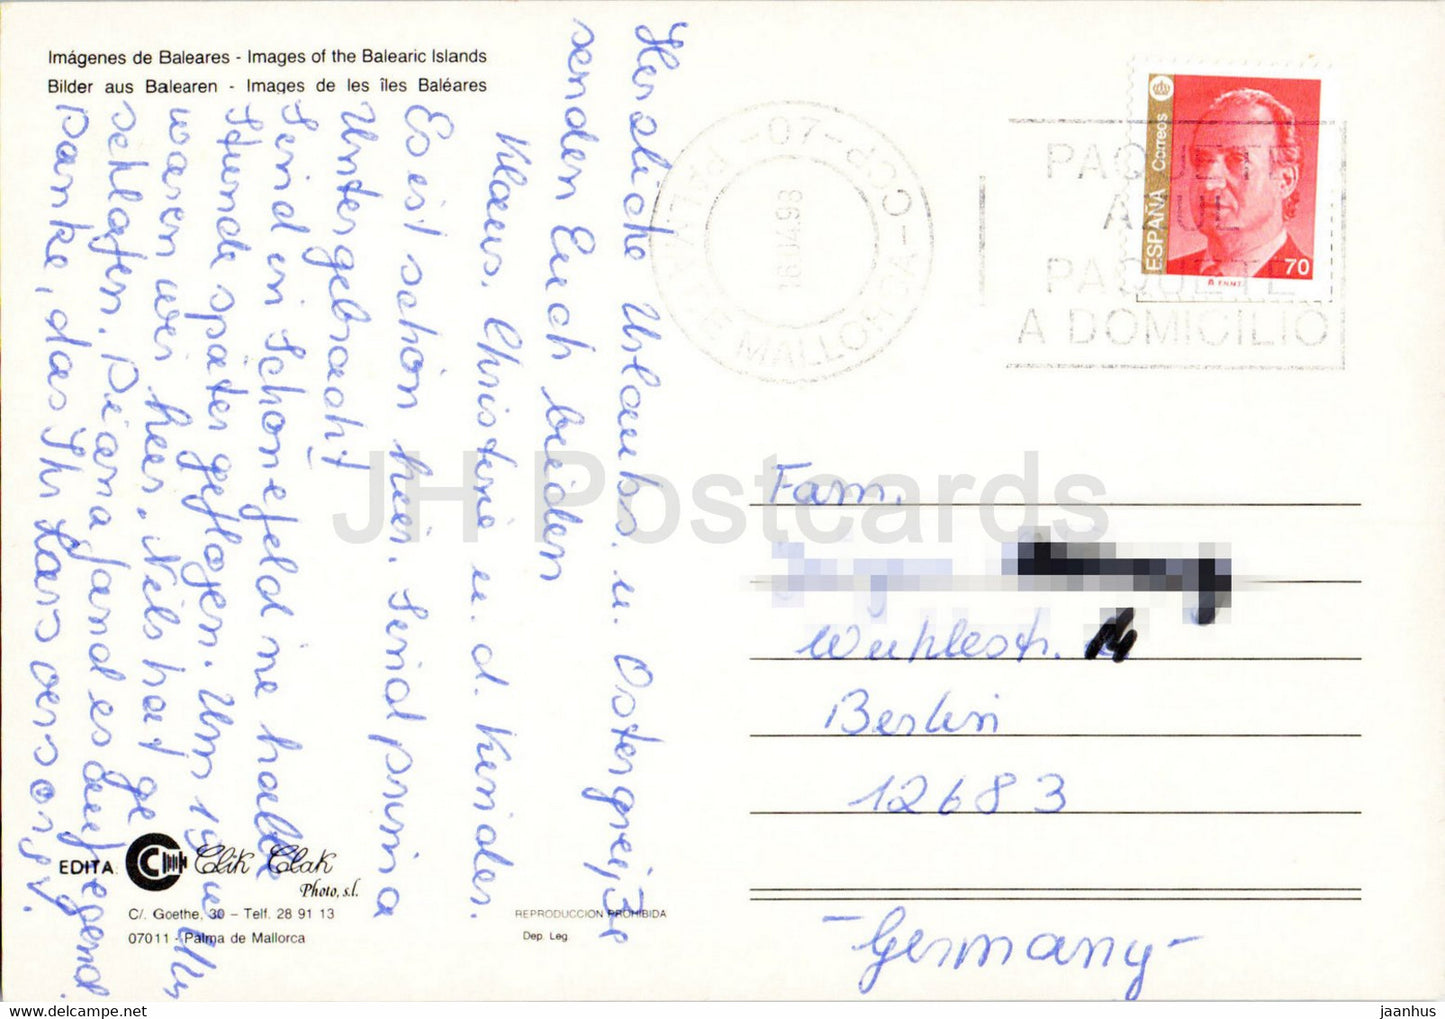 Imágenes de Baleares - Images of the Balearic Islands
Bilder aus Balearen - Images de les îles Baléares
Herzliche Urlaubs. u. Ostergrüße
senden Euch beiden
Klaus, Christine u. d. Kinder.
Es ist schon hier. Sind prima
Untergebracht!
Sind in Schönefeld ne halbe
Stunde später geflogen. Um 19 Uhr
waren wir hier. Nils hat ge
schlafen. Diana fand es aufregend
Danke, das Ihr Lars versorgt.
EDITA:
Clik Clak
Photo, s.l.
C/. Goethe, 30 – Telf. 28 91 13
07011 - Palma de Mallorca
REPRODUCCION PROHIBIDA
Dep. Leg.
CCP-07-PALMA DE MALLORCA
16.04.98
PAQUETE
AZUL
PAQUETE
A DOMICILIO
ESPAÑA Correos
70
Fam.
Wuhlestr.
Berlin
12683
- Germany -
JH Postcards
www.delcampe.net
jaanhus